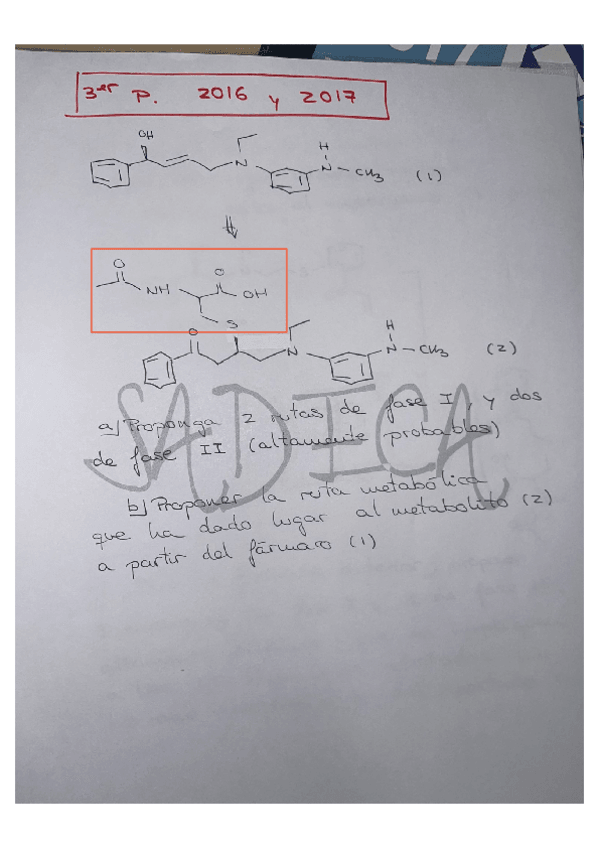 3er P. 2016 y 2017
OH
N
H
N - CH3 (1)
O
NH
O
OH
S
O
N
H
N - CH3 (2)
a) Proponga 2 rutas de fase I, y dos
de fase II (altamente probables)
b) Proponer la ruta metabólica
que ha dado lugar al metabolito (2)
a partir del fármaco (1)
SADICA